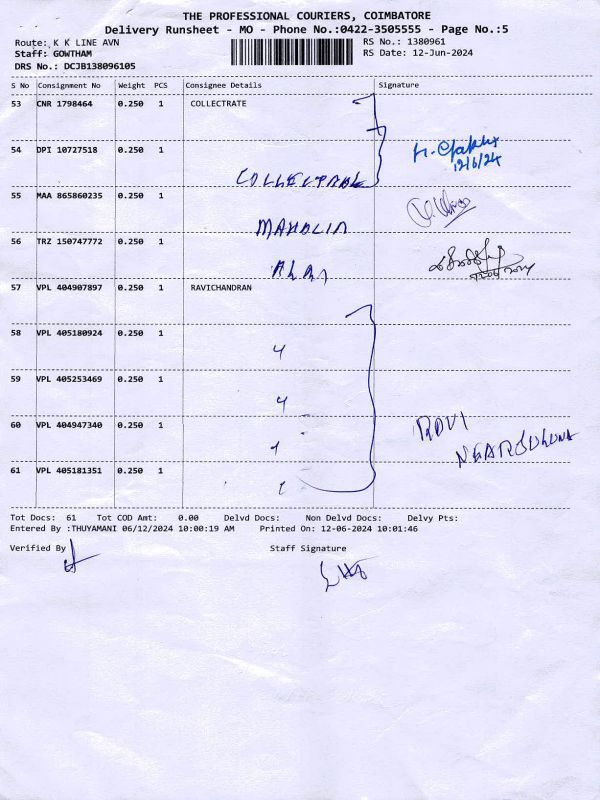 THE PROFESSIONAL COURIERS, COIMBATORE
Delivery Runsheet - MO - Phone No.:0422-3505555 - Page No.:5
Route: K K LINE AVN RS No.: 1380961
Staff: GOWTHAM RS Date: 12-Jun-2024
DRS No.: DCJB138096105
S No Consignment No Weight PCS Consignee Details Signature
53 CNR 1798464 0.250 1 COLLECTRATE
54 DPI 10727518 0.250 1
12/6/24
55 MAA 865860235 0.250 1
56 TRZ 150747772 0.250 1
57 VPL 404907897 0.250 1 RAVICHANDRAN
58 VPL 405180924 0.250 1 4
59 VPL 405253469 0.250 1 4
60 VPL 404947340 0.250 1
61 VPL 405181351 0.250 1
Tot Docs: 61 Tot COD Amt: 0.00 Delvd Docs: Non Delvd Docs: Delvy Pts:
Entered By :THUYAMANI 06/12/2024 10:00:19 AM Printed On: 12-06-2024 10:01:46
Verified By Staff Signature